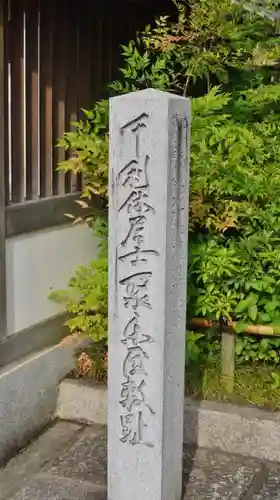 千利休居士聚楽屋敷趾